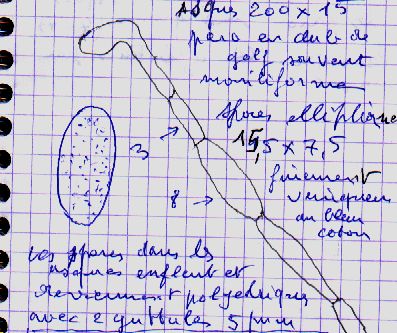 Asques 200 x 15
para en club de
golf souvent
moniliforme
spores elliptique
15,5 x 7,5
finement
verruqueux
au bleu
coton
3
8
les spores dans les
asques enflent et
deviennent polyédriques
avec 2 guttules 5 µm